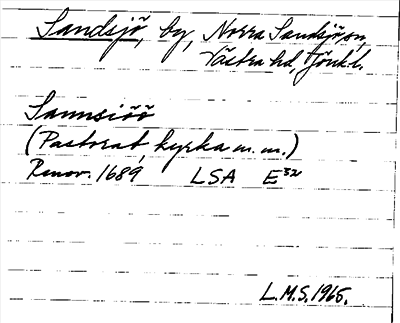 Sandsjö, by, Norra Sandsjö sn,
Västra hd, Jönk l.
Sannsiöö
(Pastorat, kyrka m. m.)
Renov. 1689 LSA E³²
L.M.S. 1965.